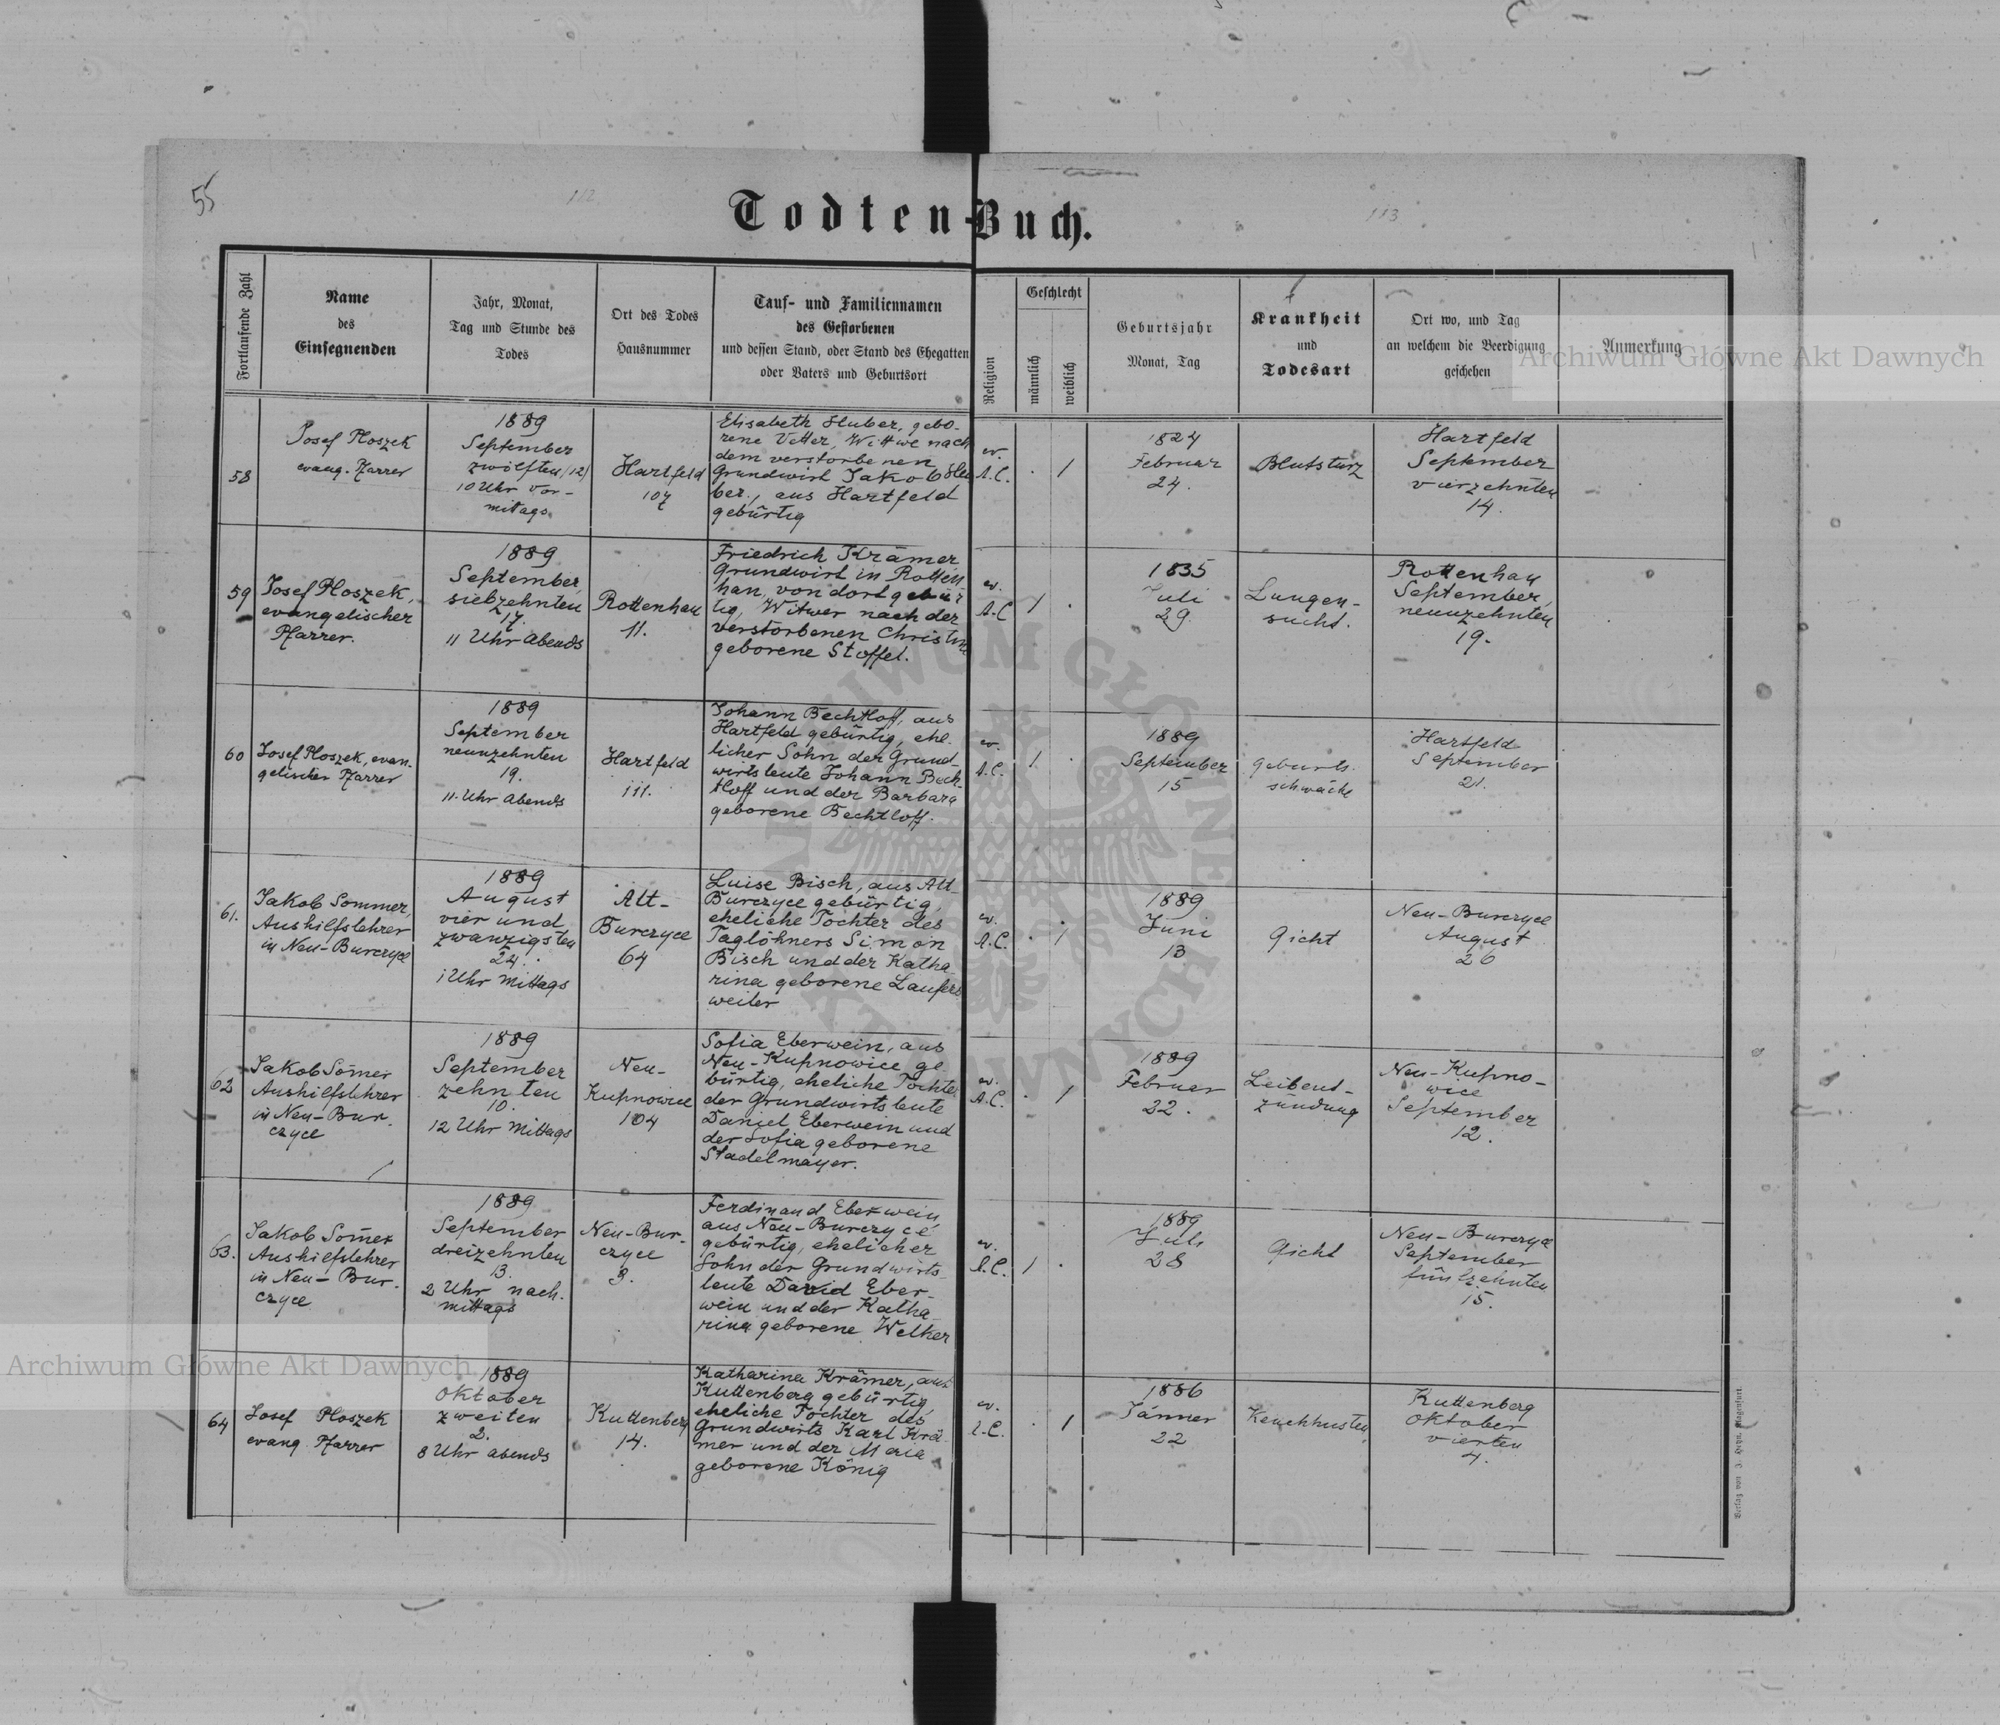 55
112
113
Todten-Buch.
Fortlaufende Zahl
Name
des
Einsegnenden
Jahr, Monat,
Tag und Stunde des
Todes
Ort des Todes
Hausnummer
Tauf- und Familiennamen
des Gestorbenen
und dessen Stand, oder Stand des Ehegatten
oder Vaters und Geburtsort
Religion
Geschlecht
männlich
weiblich
Geburtsjahr
Monat, Tag
Krankheit
und
Todesart
Ort wo, und Tag
an welchem die Beerdigung
geschehen
Anmerkung
58
Josef Ploszek
evang. Pfarrer
1889
September
zwölften /12/
10 Uhr Vor-
mittags
Hartfeld
107
Elisabeth Huber, gebo-
rene Vetter, Wittwe nach
dem verstorbenen
Grundwirt Jakob Hu
ber, aus Hartfeld
gebürtig
ev.
A.C.
. 1
1824
Februar
24.
Blutsturz
Hartfeld
September
vierzehnten
14.
59
Josef Ploszek,
evangelischer
Pfarrer.
1889
September
siebzehnten
17.
11 Uhr Abends
Rottenhan
11.
Friedrich Krämer
Grundwirt in Rotten
han, von dort gebür
tig, Witwer nach der
verstorbenen Christine
geborene Stoffel.
ev.
A.C
1 .
1835
Juli
29.
Lungen-
sucht.
Rottenhan
September,
neunzehnten
19.
60
Josef Ploszek, evan-
gelischer Pfarrer
1889
September
neunzehnten
19.
11. Uhr Abends
Hartfeld
111.
Johann Bechtloff, aus
Hartfeld gebürtig, ehe-
licher Sohn der Grund-
wirtsleute Johann Bech-
tloff und der Barbara
geborene Bechtloff.
ev.
A.C.
1 .
1889
September
15
Geburts-
schwäche
Hartfeld
September
21.
61.
Jakob Sommer,
Aushilfslehrer
in Neu-Burczyce
1889
August
vier und
zwanzigsten
24.
1 Uhr Mittags
Alt-
Burczyce
64
Luise Bisch, aus Alt-
Burczyce gebürtig,
eheliche Tochter des
Taglöhners Simon
Bisch und der Katha-
rina geborene Laufers
weiler
ev.
A.C.
. 1
1889
Juni
13
Gicht
Neu-Burczyce
August
26
62
Jakob Som̄er
Aushilfslehrer
in Neu-Bur-
czyce
1889
September
zehnten
10.
12 Uhr Mittags
Neu-
Kupnowice
104
Sofia Eberwein, aus
Neu-Kupnowice ge
bürtig, eheliche Tochter
der Grundwirtsleute
Daniel Eberwein und
der Sofia geborene
Stadelmayer.
ev.
A.C.
. 1
1889
Februar
22.
Leibent-
zündung
Neu-Kupno-
wice
September
12.
63.
Jakob Som̄er
Aushilfslehrer
in Neu-Bur-
czyce
1889
September
dreizehnten
13.
2 Uhr nach-
mittags
Neu-Bur-
czyce
3.
Ferdinand Eberwein,
aus Neu-Burczyce
gebürtig, ehelicher
Sohn der Grundwirts-
leute David Eber-
wein und der Katha-
rina geborene Welker
ev.
A.C.
1 .
1889
Juli
28
Gicht
Neu-Burczyce
September
fünfzehnten
15.
64
Josef Ploszek
evang. Pfarrer
1889
Oktober
zweiten
2.
8 Uhr abends
Kuttenberg
14.
Katharina Krämer, aus
Kuttenberg gebürtig,
eheliche Tochter des
Grundwirts Karl Krä-
mer und der Maria
geborene König
ev.
A.C.
. 1
1886
Jänner
22
Keuchhusten
Kuttenberg
Oktober
vierten
4.
Verlag von J. Heyn, Klagenfurt.
Archiwum Główne Akt Dawnych
Archiwum Główne Akt Dawnych
ARCHIWUM GŁÓWNE AKT DAWNYCH